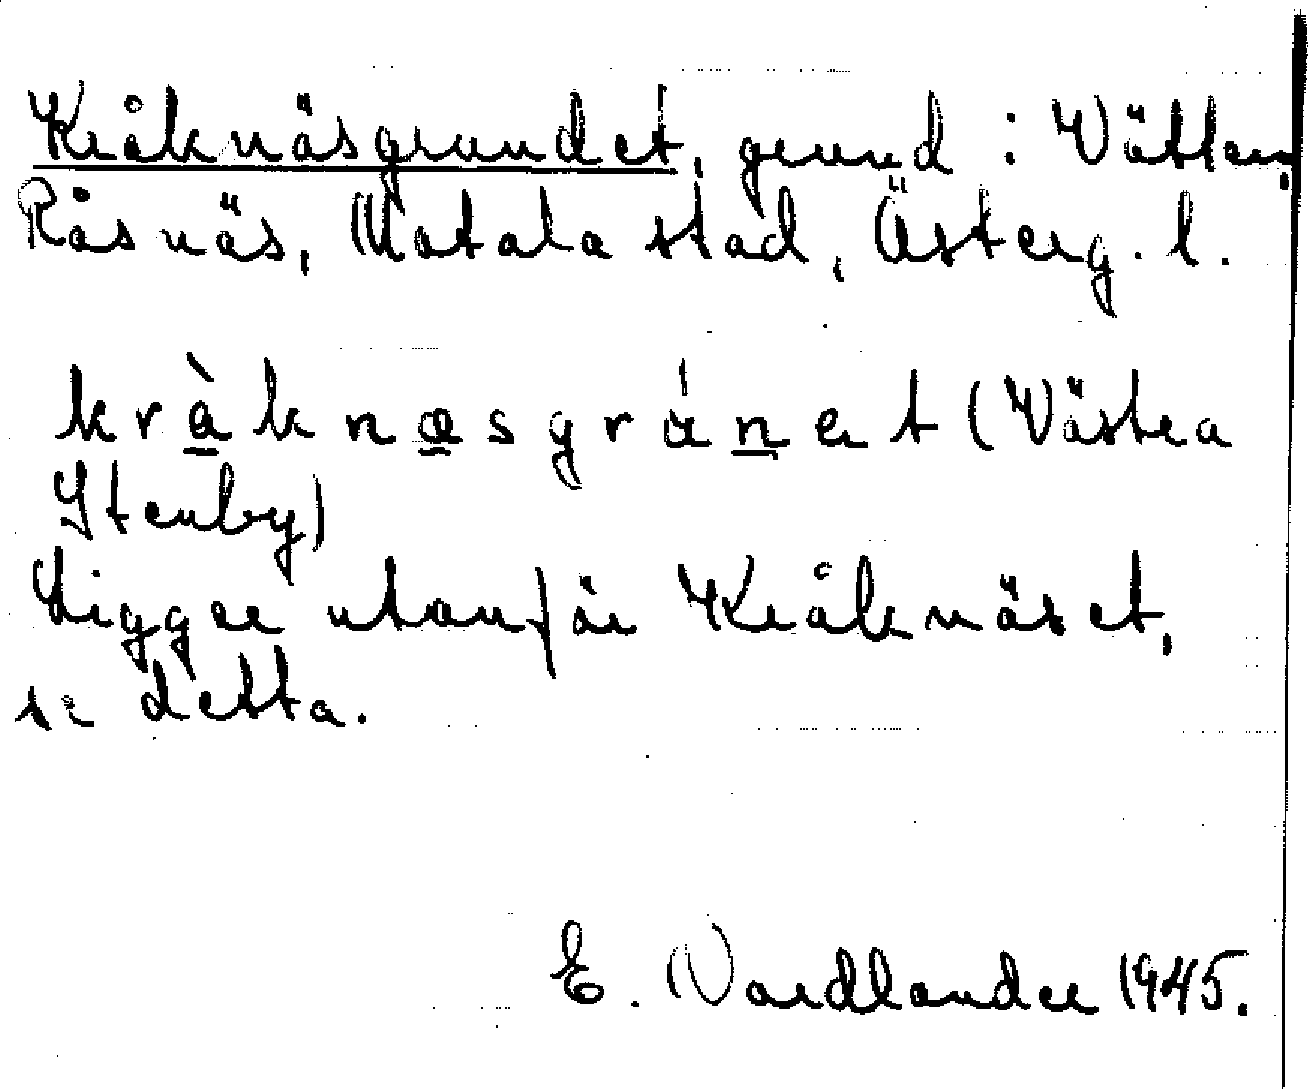 Kråknäsgrundet, grund i Vättern,
Råsnäs, Motala stad, Österg. l.
kràknæsgrunet (Västra
Stenby)
Ligger utanför Kråknäset,
se detta.
E. Nordlander 1945.